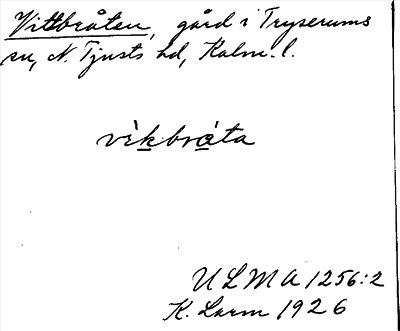 Vittbråten, gård i Tryserums
sn, N. Tjusts hd, Kalm. l.
vìkbrȧta
ULMA 1256:2
K. Larm 1926